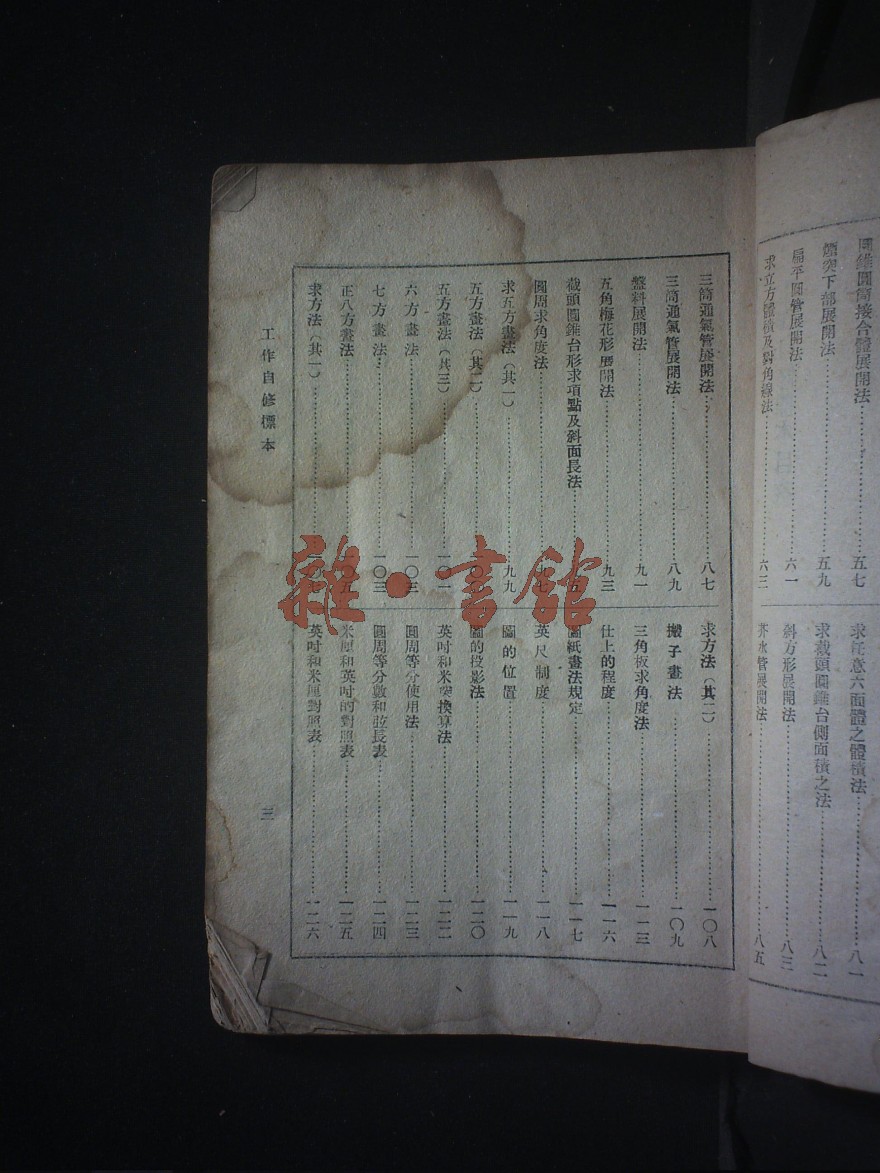 圓錐圓筒接合體展開法……五七
煙突下部展開法……五九
扁平圓管展開法……六一
求立方體積及對角線法……六三
求任意六面體之體積法……八一
求截頭圓錐台側面積之法……八二
斜方形展開法……八三
水管展開法……八五
三筒通氣管展開法……八七
三筒通氣管展開法……八九
盤料展開法……九一
五角梅花形展開法……九三
截頭圓錐台形求項點及斜面長法……五
圓周求角度法……九七
求五方畫法(其一)……九九
五方畫法(其二)……
五方畫法(其三)……一〇一
六方畫法……一〇三
七方畫法……一〇三
正八方畫法……五
求方法(其一)……一〇七
求方法(其二)……一〇八
搬子畫法……一〇九
三角板求角度法……一一三
仕上的程度……一一六
圖紙畫法規定……一一七
英尺制度……一一八
圖的位置……一一九
圖的投影法……一二〇
英吋和米突換算法……一二二
圓周等分使用法……一二三
圓周等分數和弦長表……一二四
米厘和英吋的對照表……一二五
英吋和米厘對照表……一二六
工作自修標本
三
雜·書館